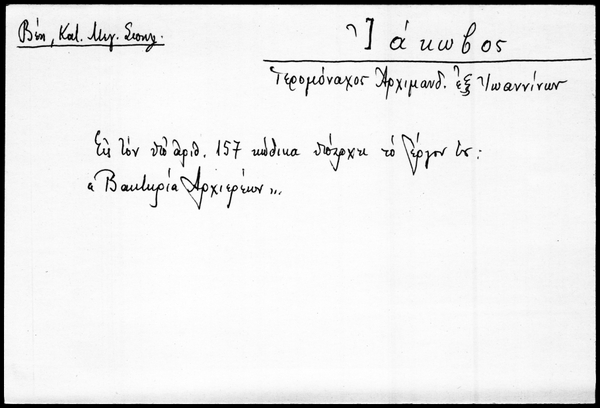 Βέη, Κατ. Μιγ. Σιοηγ.
Ἰάκωβος
Ἱερομόναχος Ἀρχιμανδ. ἐξ Ἰωαννίνων
Εἰς τὸν ὑπ' ἀριθ. 157 κώδικα ὑπάρχει τὸ ἔργον του:
"Βακτηρία Ἀρχιερέων"...